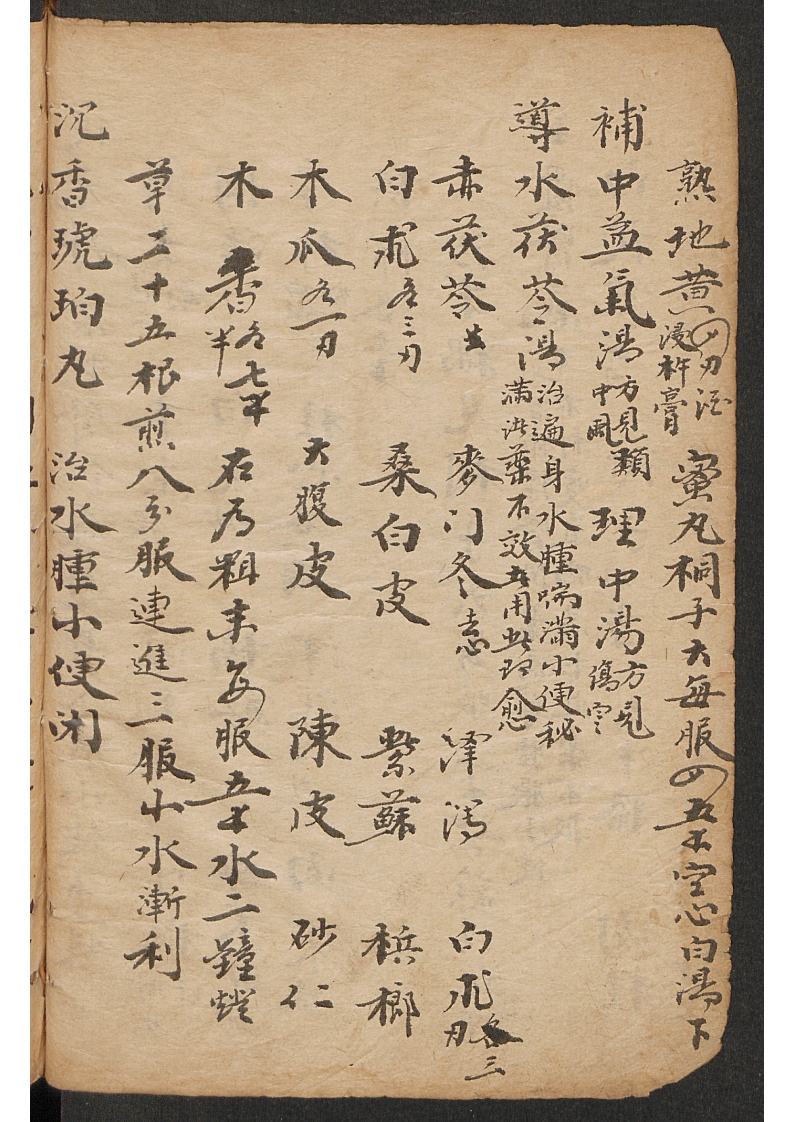 熟地黃四刄酒浸杵膏 蜜丸桐子大每服四五十空心白湯下
補中益氣湯方見類中風 理中湯方見傷寒
導水茯苓湯治遍身水腫喘滿小便秘滿諸藥不效者用此即愈
赤茯苓 麥门冬去心 澤瀉 白朮各三刄
白朮各三刄 桑白皮 紫蘇 梹榔
木瓜各一刄 大腹皮 陳皮 砂仁
木香各七半 右為粗末每服五十水二鐘燈
草二十五根煎八分服連進三服小水漸利
沉香琥珀丸 治水腫小便闭